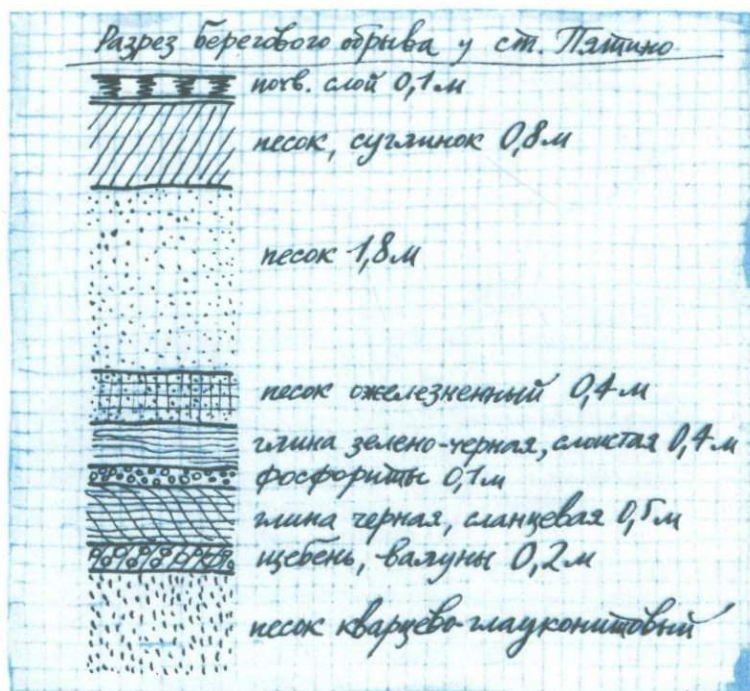 Разрез берегового обрыва у ст. Пятино
почв. слой 0,1 м
песок, суглинок 0,8 м
песок 1,8 м
песок ожелезненный 0,4 м
глина зелено-черная, слоистая 0,4 м
фосфориты 0,1 м
глина черная, сланцевая 0,5 м
щебень, валуны 0,2 м
песок кварцево-глауконитовый